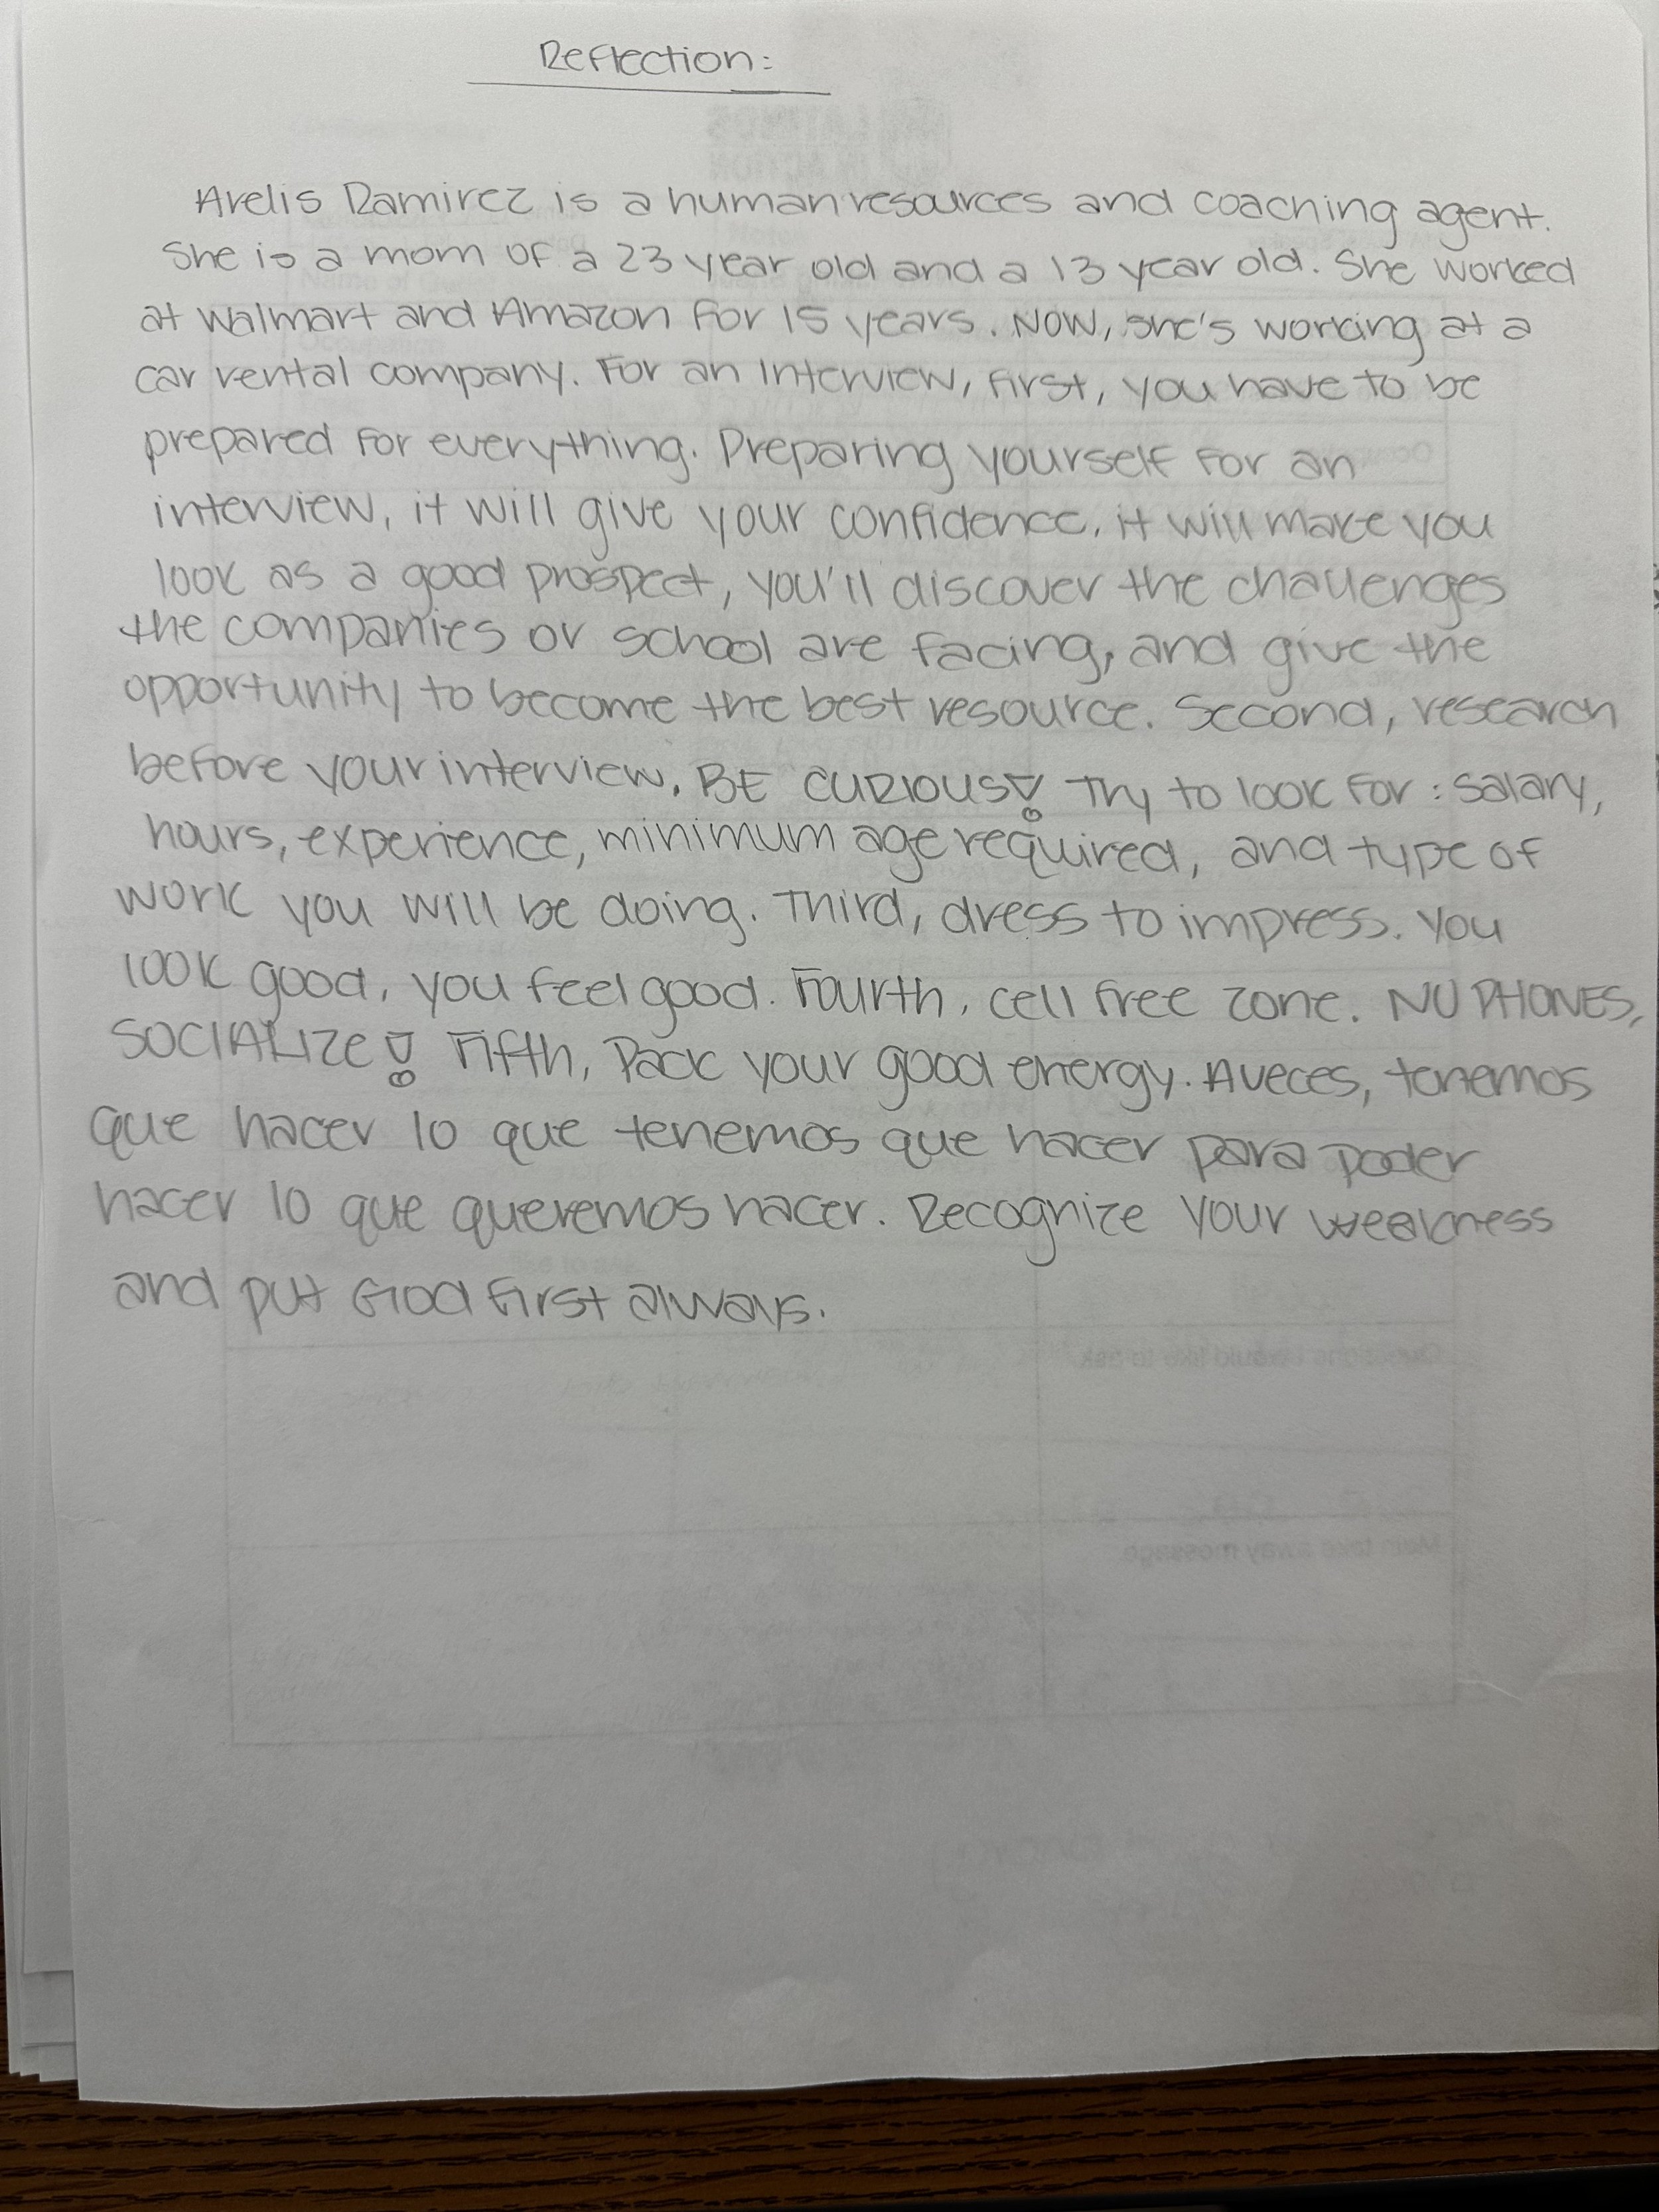 Reflection:
Arelis Ramirez is a human resources and coaching agent.
She is a mom of a 23 year old and a 13 year old. She worked
at Walmart and Amazon for 15 years. NOW, she's working at a
car rental company. For an Interview, first, you have to be
prepared for everything. Preparing yourself for an
interview, it will give your confidence, it will make you
look as a good prospect, you'll discover the challenges
the companies or school are facing, and give the
opportunity to become the best resource. Second, research
before your interview. BE CURIOUS! Try to look for: salary,
hours, experience, minimum age required, and type of
work you will be doing. Third, dress to impress. You
look good, you feel good. Fourth, cell free zone. NO PHONES,
SOCIALIZE! Fifth, Pack your good energy. Aveces, tenemos
que hacer lo que tenemos que hacer para poder
hacer lo que queremos hacer. Recognize your weakness
and put God first always.
Questions I would like to ask
Main take away message